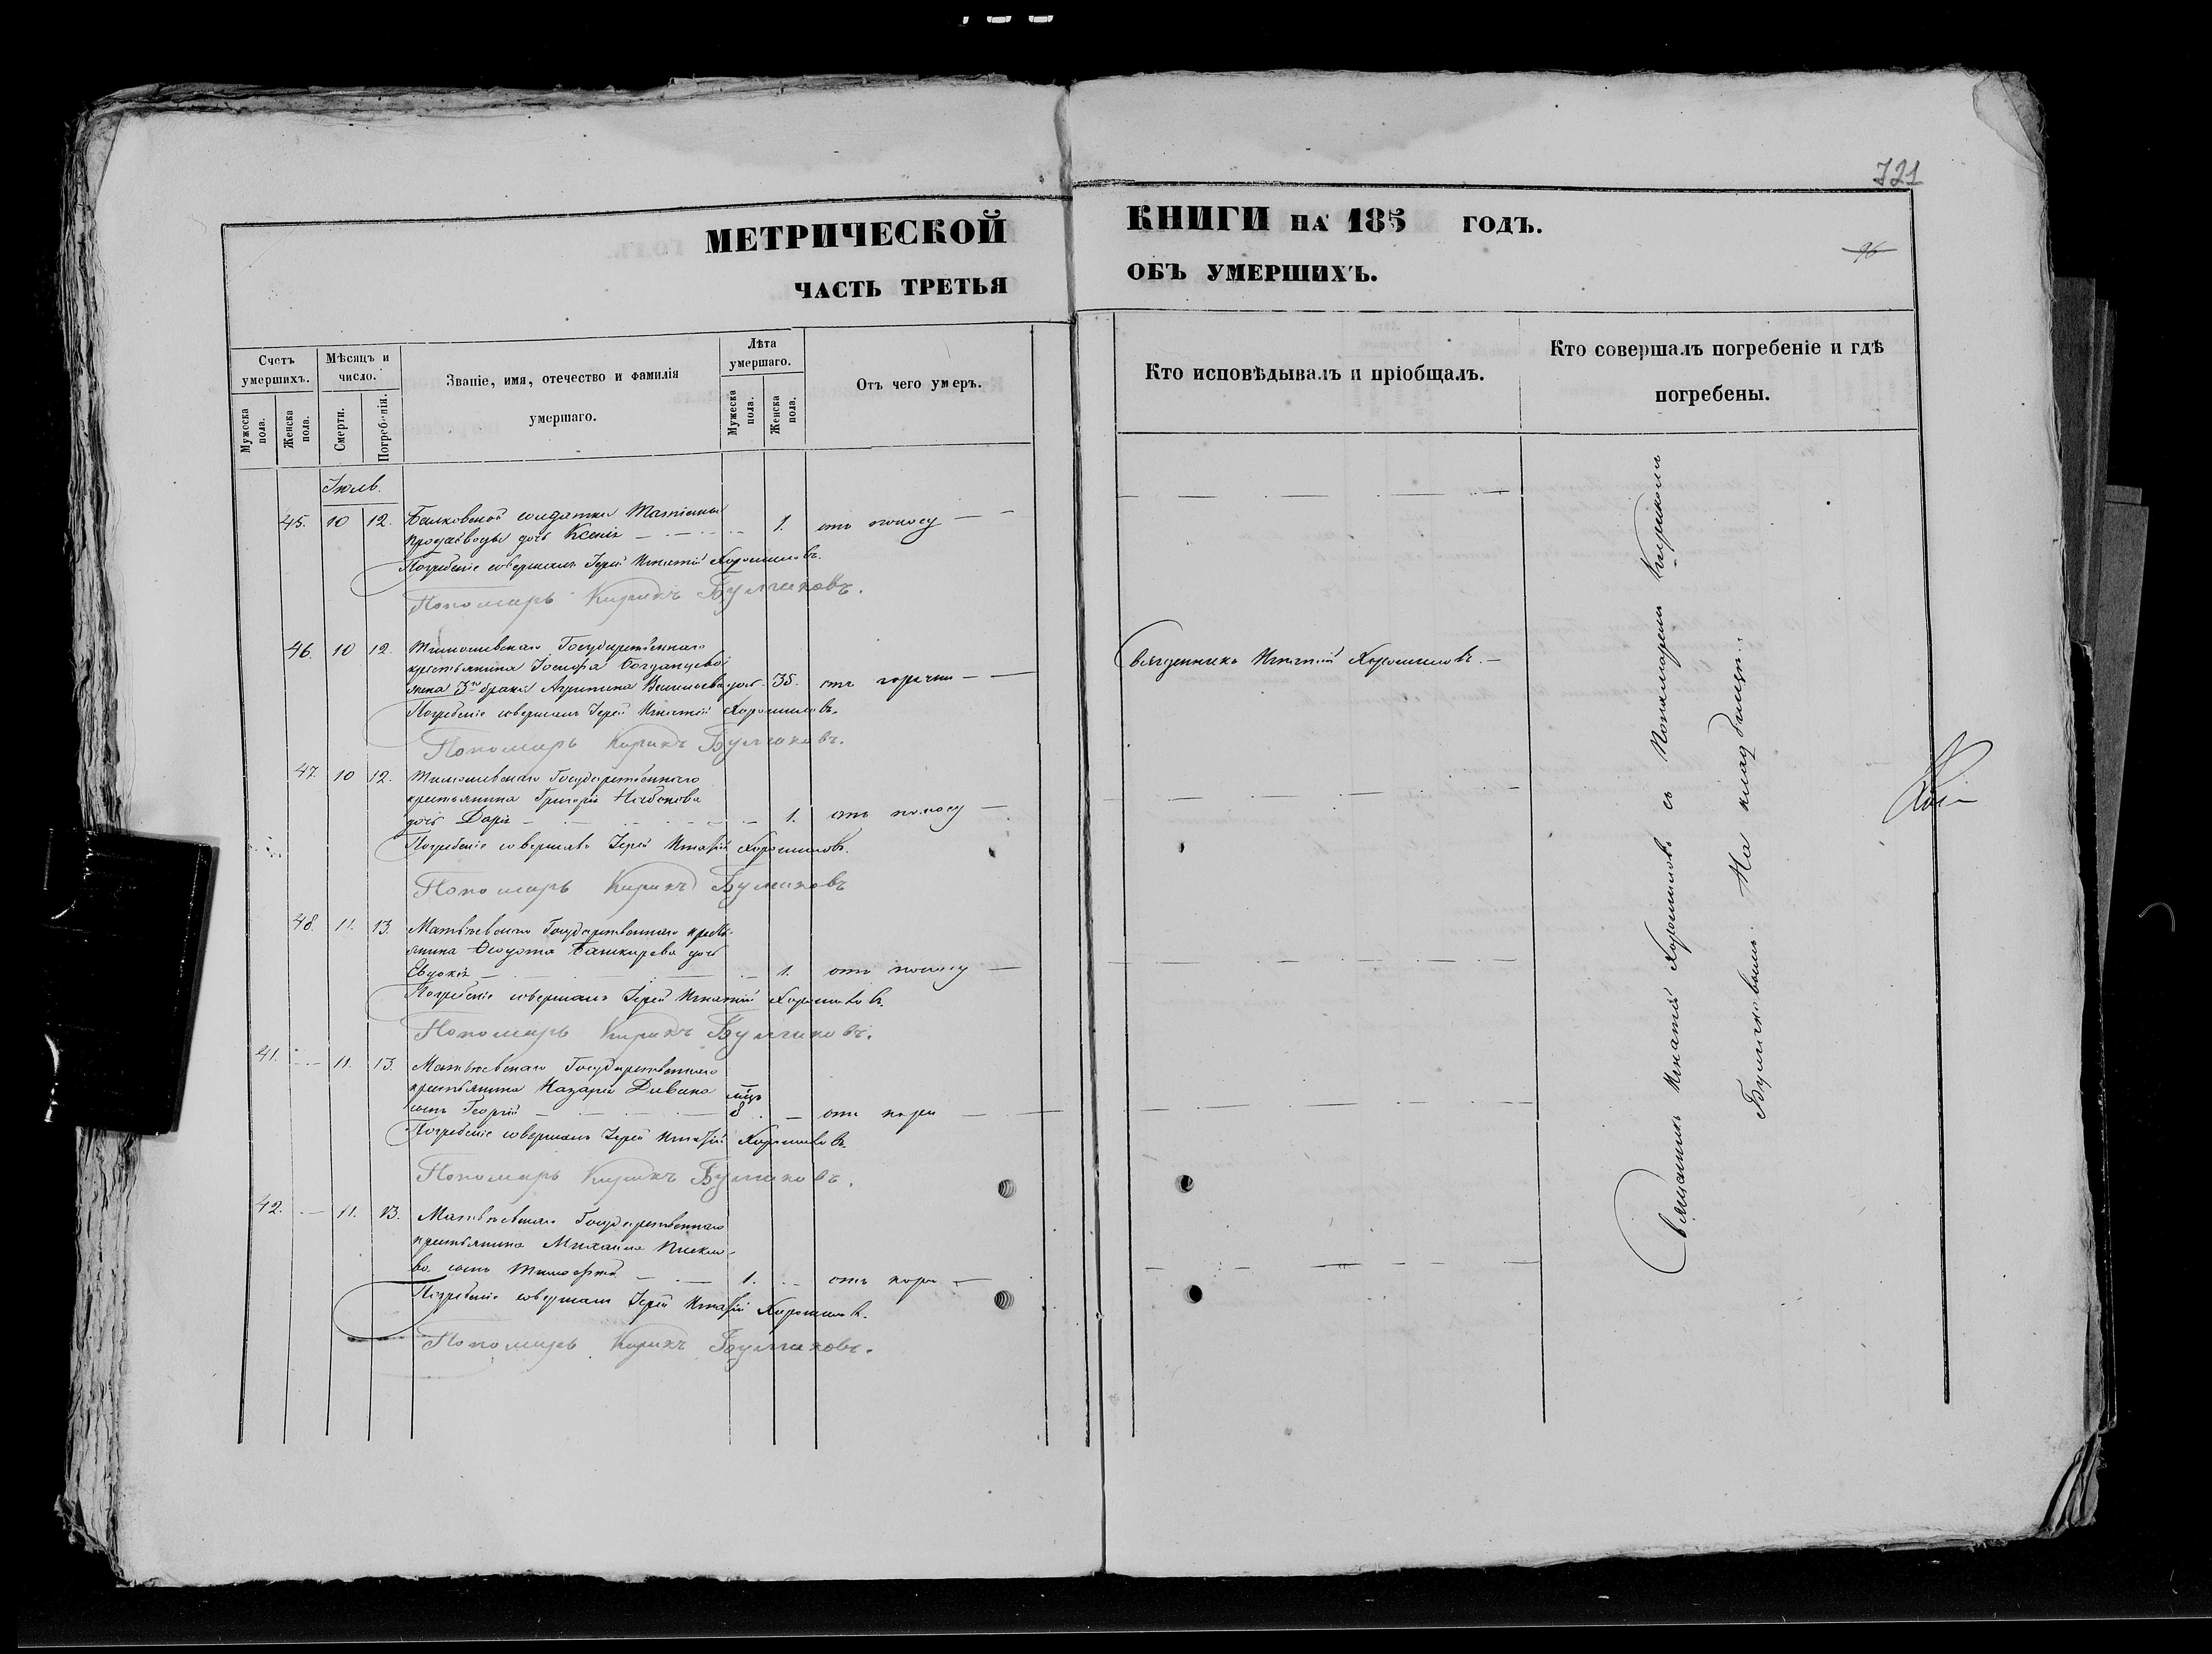 721
96
МЕТРИЧЕСКОЙ КНИГИ НА 185 ГОДЪ.
ЧАСТЬ ТРЕТЬЯ ОБЪ УМЕРШИХЪ.
Счетъ умершихъ.
Мужеска пола.
Женска пола.
Мѣсяцъ и число.
Смерти.
Погребенія.
Званіе, имя, отечество и фамилія
умершаго.
Лѣта умершаго.
Мужеска пола.
Женска пола.
Отъ чего умеръ.
Кто исповѣдывалъ и пріобщалъ.
Кто совершалъ погребеніе и гдѣ
погребены.
Іюль.
45. 10 12. солдатки Татіаны
дочь Ксенія 1. отъ поносу
Погребеніе совершалъ Іерей Игнатій Хорошиловъ.
Пономарь Кирикъ Булгаковъ.
46. 10 12. Тимошевскаго Государственнаго
крестьянина Іосифа Богданцева
жена 3го брака Агрипина 35. отъ горячки
Священникъ Игнатій Хорошиловъ.
Погребеніе совершалъ Іерей Игнатій Хорошиловъ.
Пономарь Кирикъ Булгаковъ.
47. 10 12. Тимошевскаго Государственнаго
крестьянина Григорія
дочь Дарія 1. отъ поносу
Погребеніе совершалъ Іерей Игнатій Хорошиловъ.
Пономарь Кирикъ Булгаковъ
48. 11. 13. Матвѣевскаго Государственнаго кресть-
янина Ѳедота Башкирева дочь
Евдокія 1. отъ поносу
Погребеніе совершалъ Іерей Игнатій Хорошиловъ.
Пономарь Кирикъ Булгаковъ.
41. 11. 13. Матвѣевскаго Государственнаго
крестьянина Назарія
сынъ Георгій 8 мцъ отъ кори
Погребеніе совершалъ Іерей Игнатій Хорошиловъ.
Пономарь Кирикъ Булгаковъ.
42. 11. 13. Матвѣевскаго Государственнаго
крестьянина Михаила
сынъ Тимофей 1. отъ кори
Погребеніе совершалъ Іерей Игнатій Хорошиловъ.
Пономарь Кирикъ Булгаковъ.
Священникъ Игнатій Хорошиловъ съ Пономаремъ Кирикомъ
Булгаковымъ. На кладбищѣ.